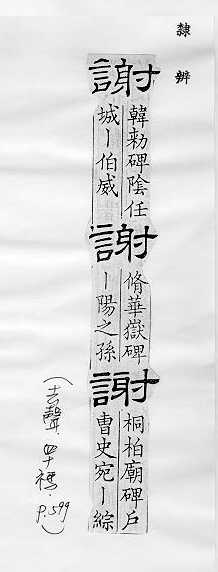 隸辨
謝
韓勑碑陰任
城丨伯威
謝
脩華嶽碑
丨陽之孫
謝
桐柏廟碑戶
曹史宛丨綜
(去聲. 四十禡.
p.599)